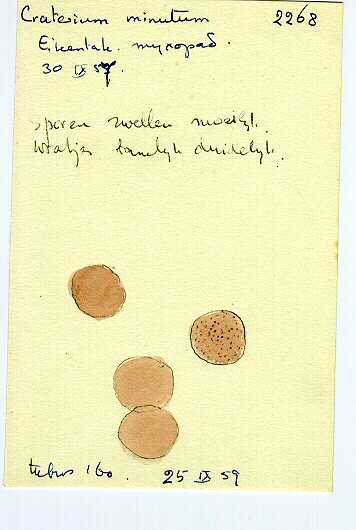 Craterium minutum 2268
Eikentak. myxopad.
30 IX 57.
sporen zwellen moeilyk.
Wratjes tamelyk duidelyk.
tubus 160. 25 IX 59